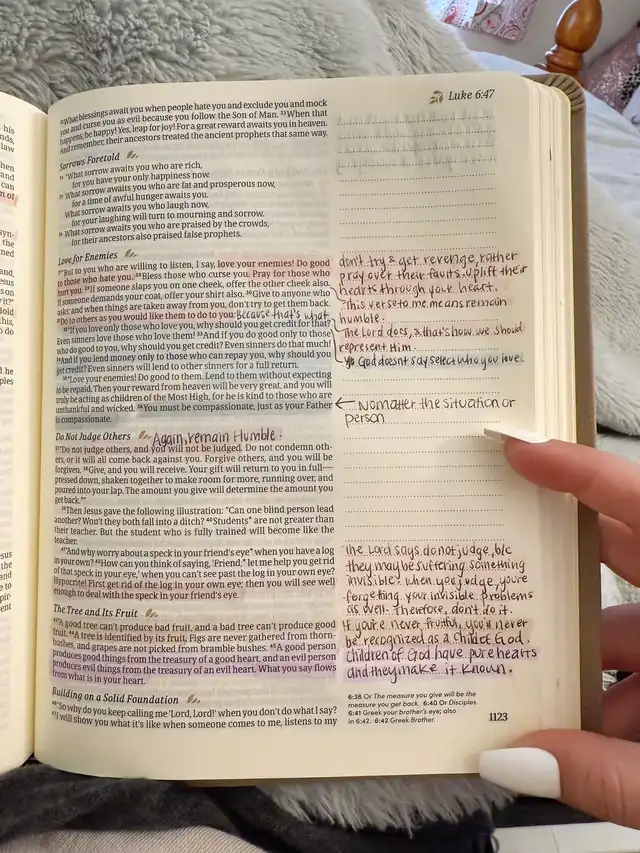 Luke 6:47
²²What blessings await you when people hate you and exclude you and mock
you and curse you as evil because you follow the Son of Man. ²³When that
happens, be happy! Yes, leap for joy! For a great reward awaits you in heaven.
And remember, their ancestors treated the ancient prophets that same way.
Sorrows Foretold
²⁴ “What sorrow awaits you who are rich,
for you have your only happiness now.
²⁵ What sorrow awaits you who are fat and prosperous now,
for a time of awful hunger awaits you.
What sorrow awaits you who laugh now,
for your laughing will turn to mourning and sorrow.
²⁶ What sorrow awaits you who are praised by the crowds,
for their ancestors also praised false prophets.
Love for Enemies
²⁷“But to you who are willing to listen, I say, love your enemies! Do good
to those who hate you. ²⁸Bless those who curse you. Pray for those who
hurt you. ²⁹If someone slaps you on one cheek, offer the other cheek also.
If someone demands your coat, offer your shirt also. ³⁰Give to anyone who
asks; and when things are taken away from you, don’t try to get them back.
³¹Do to others as you would like them to do to you. Because that's what
³²“If you love only those who love you, why should you get credit for that?
Even sinners love those who love them! ³³And if you do good only to those
who do good to you, why should you get credit? Even sinners do that much!
³⁴And if you lend money only to those who can repay you, why should you
get credit? Even sinners will lend to other sinners for a full return.
³⁵“Love your enemies! Do good to them. Lend to them without expecting
to be repaid. Then your reward from heaven will be very great, and you will
truly be acting as children of the Most High, for he is kind to those who are
unthankful and wicked. ³⁶You must be compassionate, just as your Father
is compassionate.
Do Not Judge Others
Again, remain Humble.
³⁷“Do not judge others, and you will not be judged. Do not condemn oth-
ers, or it will all come back against you. Forgive others, and you will be
forgiven. ³⁸Give, and you will receive. Your gift will return to you in full—
pressed down, shaken together to make room for more, running over, and
poured into your lap. The amount you give will determine the amount you
get back.*”
³⁹Then Jesus gave the following illustration: “Can one blind person lead
another? Won’t they both fall into a ditch? ⁴⁰Students* are not greater than
their teacher. But the student who is fully trained will become like the
teacher.
⁴¹“And why worry about a speck in your friend’s eye* when you have a log
in your own? ⁴²How can you think of saying, ‘Friend,* let me help you get rid
of that speck in your eye,’ when you can’t see past the log in your own eye?
Hypocrite! First get rid of the log in your own eye; then you will see well
enough to deal with the speck in your friend’s eye.
The Tree and Its Fruit
⁴³“A good tree can’t produce bad fruit, and a bad tree can’t produce good
fruit. ⁴⁴A tree is identified by its fruit. Figs are never gathered from thorn-
bushes, and grapes are not picked from bramble bushes. ⁴⁵A good person
produces good things from the treasury of a good heart, and an evil person
produces evil things from the treasury of an evil heart. What you say flows
from what is in your heart.
Building on a Solid Foundation
⁴⁶“So why do you keep calling me ‘Lord, Lord!’ when you don’t do what I say?
⁴⁷I will show you what it’s like when someone comes to me, listens to my
don't try & get revenge, rather
pray over their faults. uplift their
hearts through your heart.
This verse to me means remain
humble.
The Lord does, & that's how we should
represent Him.
God doesnt say select who you love.
No matter the situation or
person
The Lord says do not judge, b/c
they may be suffering something
invisible. when you judge, you're
forgetting your invisible problems
as well. Therefore, don't do it.
If you're never fruitful, you'll never
be recognized as a child of God.
children of God have pure hearts
and they make it known.
6:38 Or The measure you give will be the
measure you get back. 6:40 Or Disciples.
6:41 Greek your brother’s eye; also
in 6:42. 6:42 Greek Brother.
1123